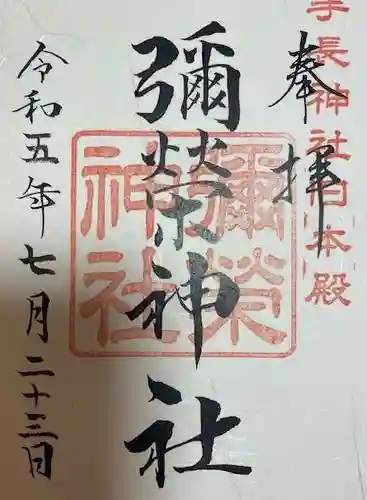 手長神社日本殿
奉拝
彌榮神社
彌榮神社
令和五年七月二十三日